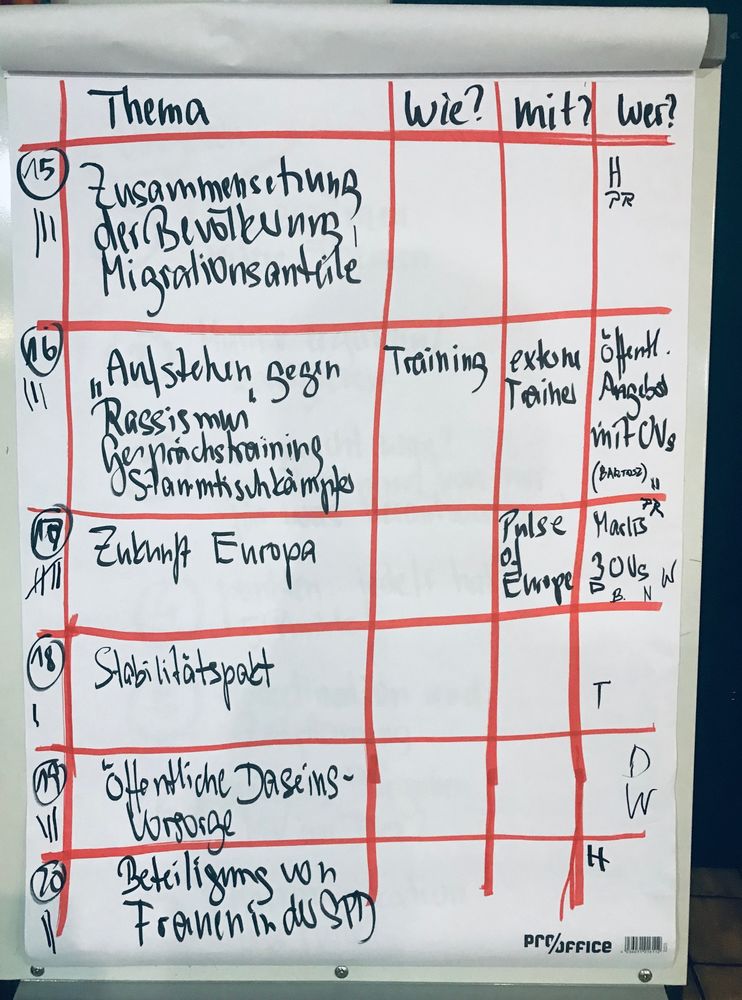 Thema wie? mit? wer?
15 Zusammensetzung
der Bevölkerung,
Migrationsanteile
H
PR
16 „Aufstehen gegen
Rassismus“
Gesprächstraining
Stammtischkämpfer
Training
externe
Trainer
öffentl.
Angebot
mit OVs
(BARTOSZ)
17 Zukunft Europa
Pulse
of
Europe
PR
3 OVs W
D B. N
18 Stabilitätspakt
T
19 öffentliche Daseins-
vorsorge
D
W
20 Beteiligung von
Frauen in der SPD
H
PRO/OFFICE